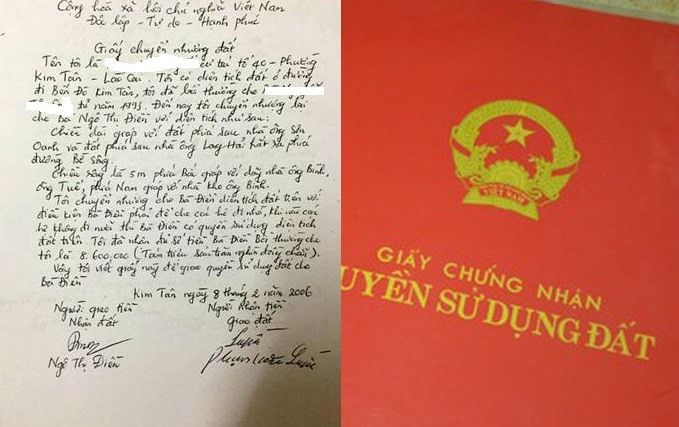 Cộng hòa xã hội chủ nghĩa Việt Nam
Độc lập - Tự do - Hạnh phúc
Giấy chuyển nhượng đất
Tên tôi là cư trú tổ 40 - Phường
Kim Tân - Lào Cai. Tôi có diện tích đất ở đường
đi Bến Đá Kim Tân, tôi đã bồi thường cho
từ năm 1993. Đến nay tôi chuyển nhượng lại
cho bà Ngô Thị Điền với diện tích như sau:
Chiều dài giáp với đất phía sau nhà ông Sơn
Oanh và đất phía sau nhà ông Long Hải hắt ra phía
đường Bờ Sông.
Chiều rộng là 5m phía Bắc giáp với dãy nhà ông Bình,
ông Tuế, phía Nam giáp với nhà kho ông Bình.
Tôi chuyển nhượng cho Bà Điền diện tích đất trên với
điều kiện Bà Điền phải để cho các hộ đi nhờ, khi nào các
hộ không đi nữa thì Bà Điền có quyền sử dụng diện tích
đất trên. Tôi đã nhận đủ số tiền Bà Điền Bồi thường cho
tôi là 8.600.000 (Tám triệu sáu trăm nghìn đồng chẵn).
Vậy tôi viết giấy này để giao quyền sử dụng đất cho
Bà Điền.
Kim Tân ngày 8 tháng 2 năm 2006
Người giao tiền Người nhận tiền
Nhận đất giao đất
Ngô Thị Điền
VIỆT NAM
GIẤY CHỨNG NHẬN
UYỀN SỬ DỤNG ĐẤT